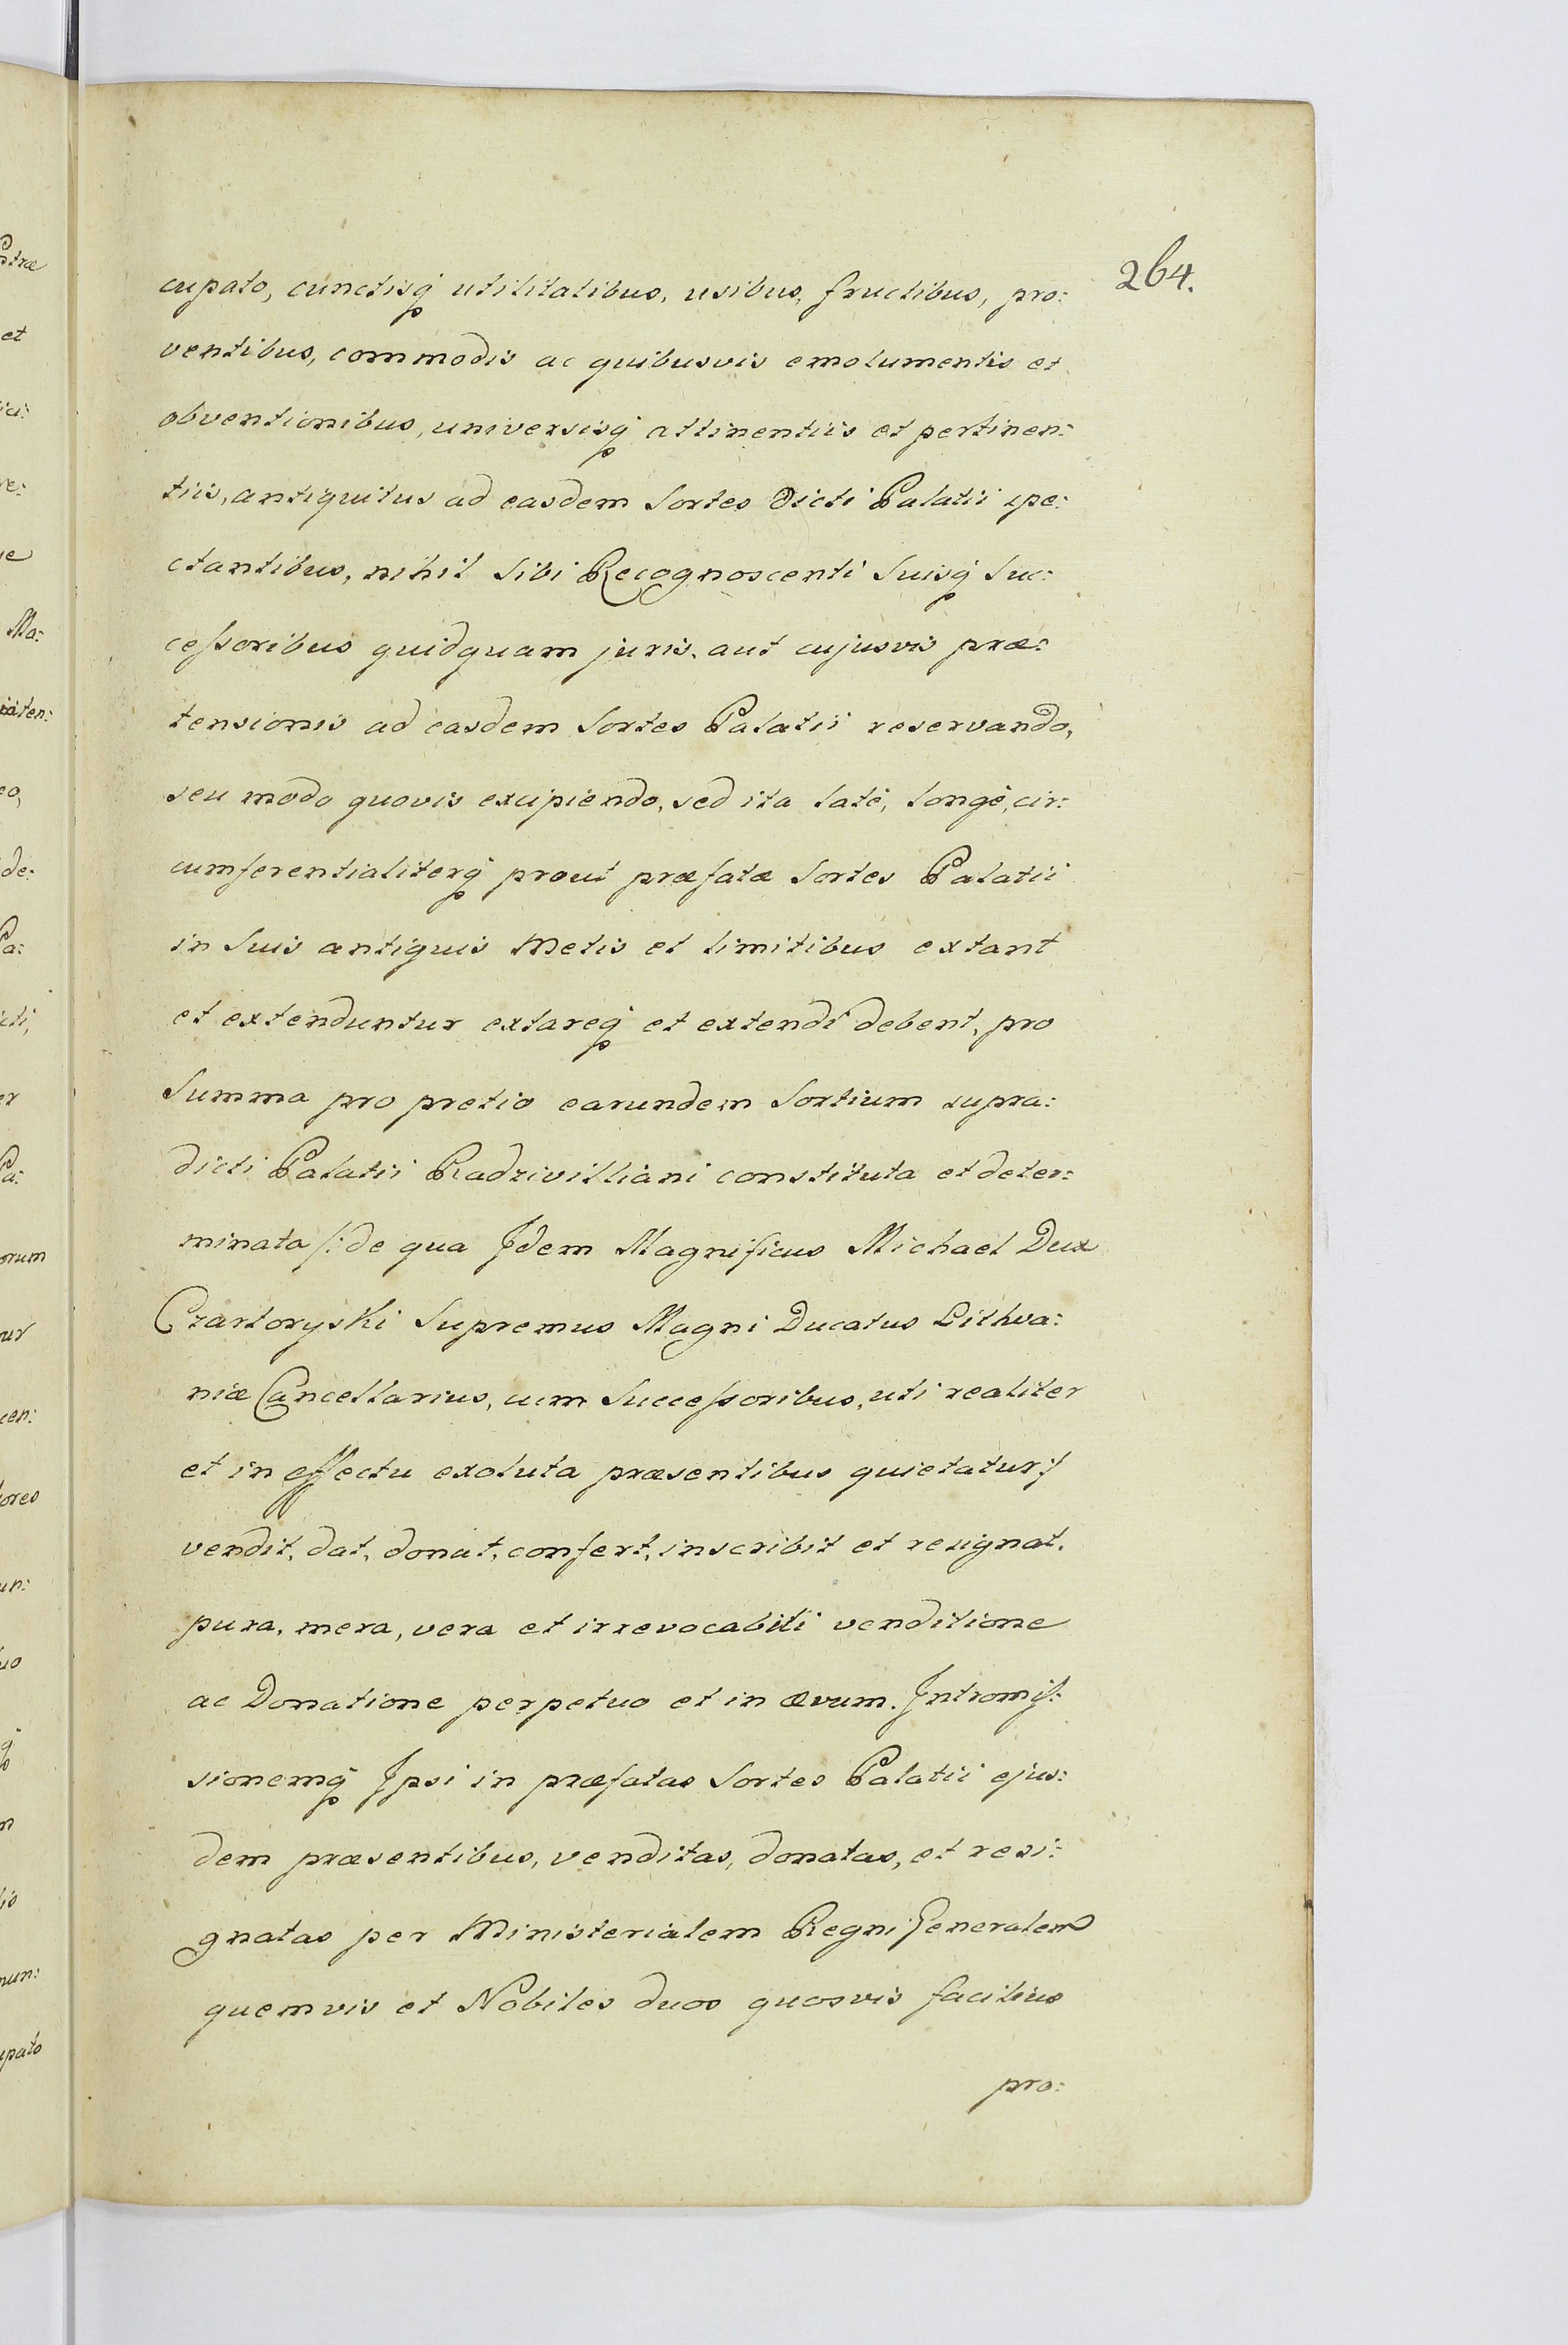 264.
cupato, cunctisq̃ utilitatibus, usibus, fructibus, pro:
ventibus, commodis ac quibusvis emolumentis et
obventionibus, universisq̃ attinentiis et pertinen:
tiis, antiquitus ad easdem Sortes dicti Palatii spe:
ctantibus, nihil sibi Recognoscenti Suisq̃ Suc:
cessoribus quidquam juris, aut cujusvis præ:
tensionis ad easdem Sortes Palatii reservando,
seu modo quovis excipiendo, sed ita latè, longè, cir:
cumferentialiterq̃ prout præfatæ Sortes Palatii
in Suis antiquis Metis et limitibus extant
et extenduntur extareq̃ et extendi debent, pro
Summa pro pretio earundem Sortium supra:
dicti Palatii Radzivilliani constituta et deter:
minata /: de qua Idem Magnificus Michael Dux
Czartoryski Supremus Magni Ducatus Lithva:
niæ Cancellarius, cum Successoribus, uti realiter
et in effectu exoluta præsentibus quietatur :/
vendit, dat, donat, confert, inscribit et resignat,
pura, mera, vera et irrevocabili venditione
ac Donatione perpetuo et in ævum. Intromis:
sionemq̃ Ipsi in præfatas Sortes Palatii ejus:
dem præsentibus, venditas, donatas, et resi:
gnatas per Ministerialem Regni Generalem
quemvis et Nobiles duos quosvis facilius
pro: